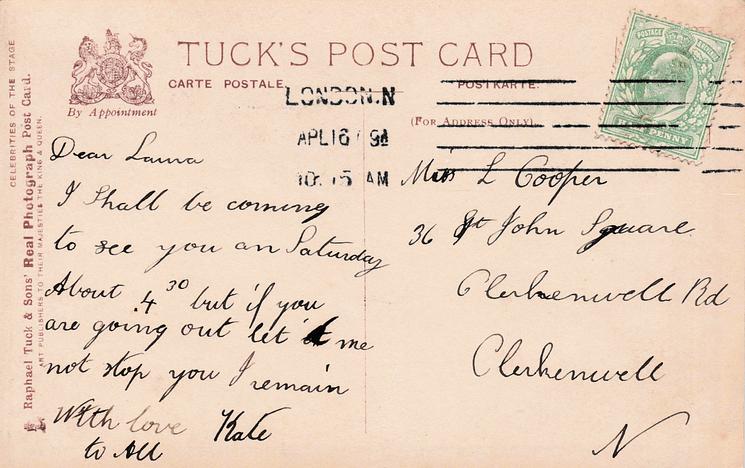 TUCK'S POST CARD
CARTE POSTALE.
POSTKARTE.
By Appointment
(FOR ADDRESS ONLY).
CELEBRITIES OF THE STAGE
Raphael Tuck & Sons' Real Photograph Post Card.
ART PUBLISHERS TO THEIR MAJESTIES THE KING & QUEEN.
LONDON.N
APL 16
10.15 AM
POSTAGE
HALFPENNY
Dear Laura
I shall be coming
to see you on Saturday
About 4 30 but if you
are going out let me
not stop you I remain
With love Kate
to All
Miss L Cooper
36 St John Square
Clerkenwell Rd
Clerkenwell
N